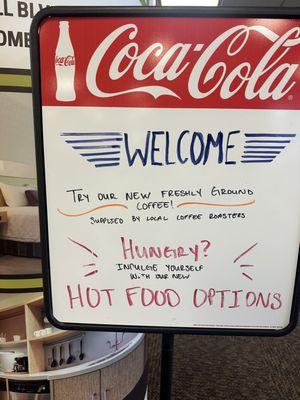 LL BLV
OME
Coca-Cola
Coca-Cola
WELCOME
TRY OUR NEW FRESHLY GROUND
COFFEE!
SUPPLIED BY LOCAL COFFEE ROASTERS
HUNGRY?
INDULGE YOURSELF
WITH OUR NEW
HOT FOOD OPTIONS